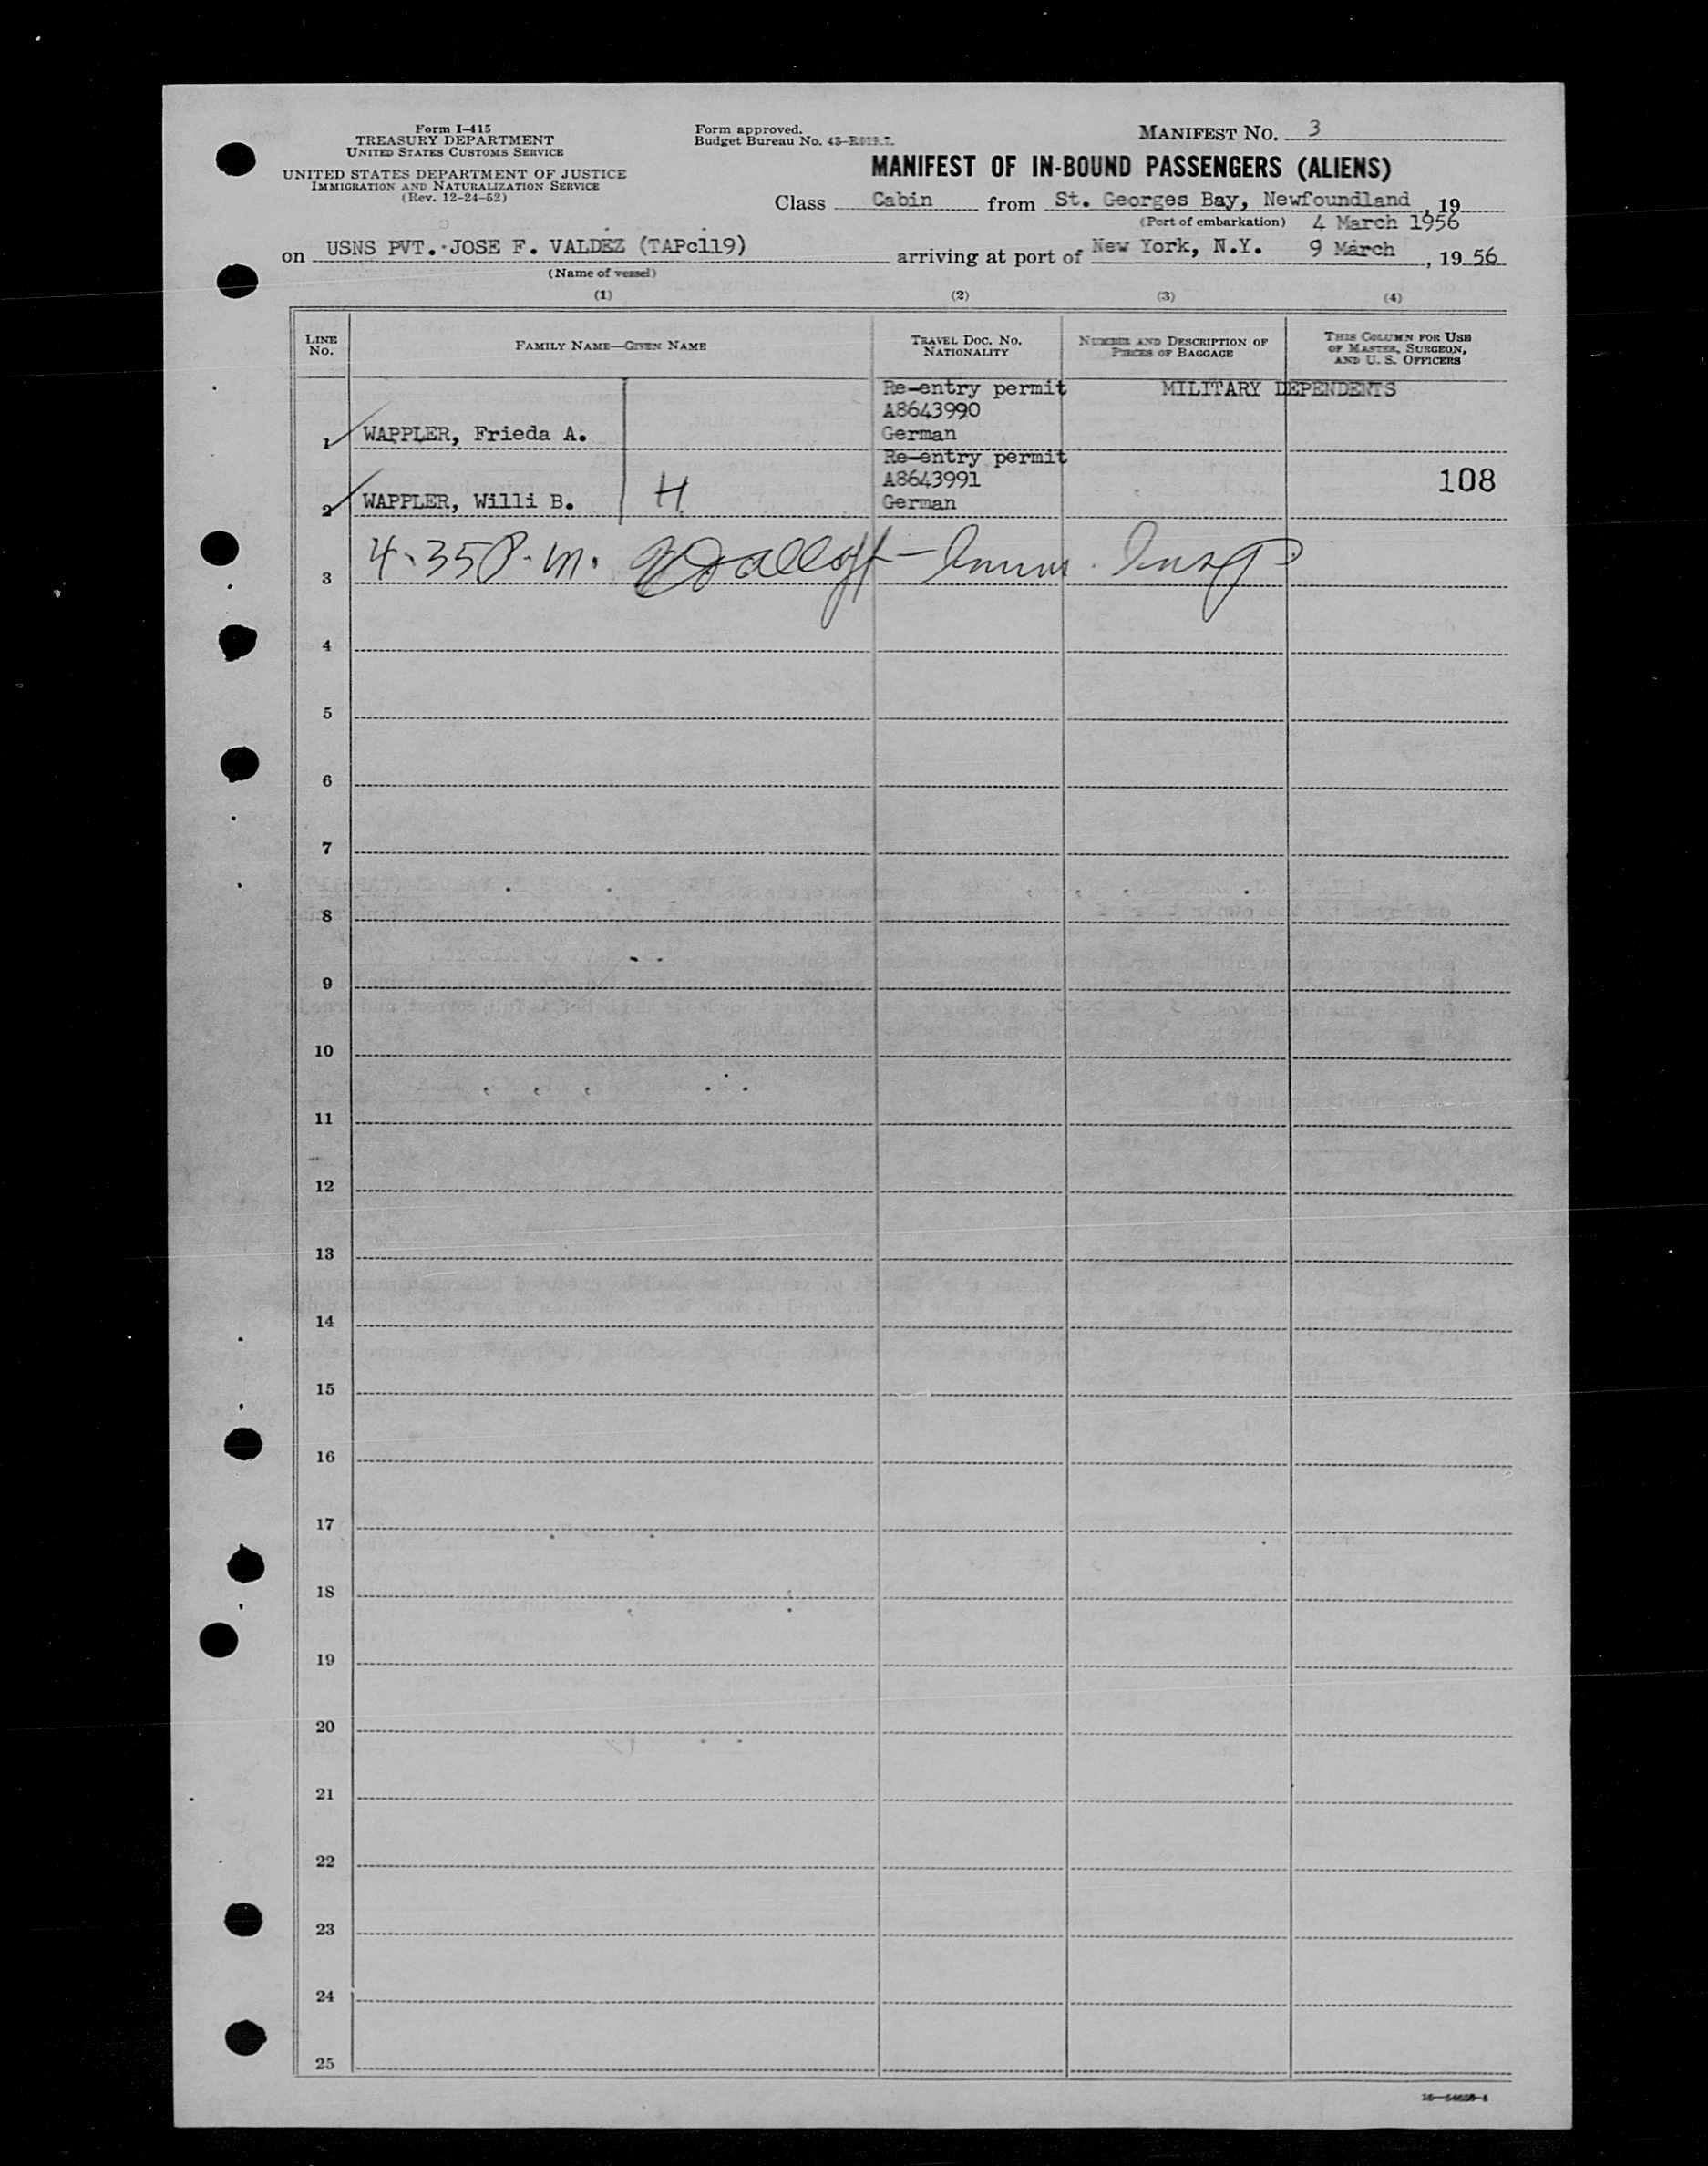 Form I-415
TREASURY DEPARTMENT
UNITED STATES CUSTOMS SERVICE
UNITED STATES DEPARTMENT OF JUSTICE
IMMIGRATION AND NATURALIZATION SERVICE
(Rev. 12-24-52)
Form approved.
Budget Bureau No.
MANIFEST NO. 3
MANIFEST OF IN-BOUND PASSENGERS (ALIENS)
Class Cabin from St. Georges Bay, Newfoundland, 19
(Port of embarkation) 4 March 1956
on USNS PVT. JOSE F. VALDEZ (TAPc119) arriving at port of New York, N.Y. 9 March, 19 56
(Name of vessel)
(1) (2) (3) (4)
LINE NO.
FAMILY NAME—GIVEN NAME
TRAVEL DOC. NO.
NATIONALITY
NUMBER AND DESCRIPTION OF
PIECES OF BAGGAGE
THIS COLUMN FOR USE
OF MASTER, SURGEON,
AND U. S. OFFICERS
Re-entry permit MILITARY DEPENDENTS
A8643990
1 WAPPLER, Frieda A. German
Re-entry permit
A8643991 108
2 WAPPLER, Willi B. H German
3 4.35 P.m. Immi. Insp
4
5
6
7
8
9
10
11
12
13
14
15
16
17
18
19
20
21
22
23
24
25